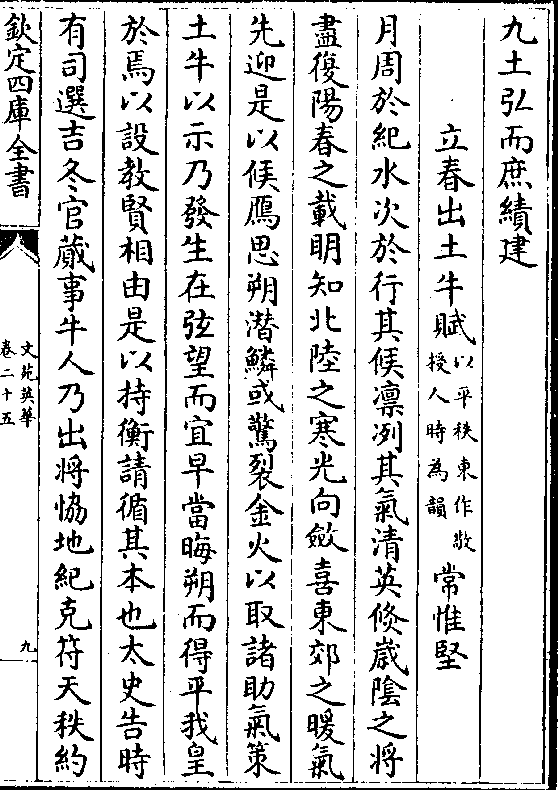 九土弘而庶績建
立春出土牛賦以平秩東作敬授人時為韻 常惟堅
月周於紀水次於行其候凛冽其氣清英倐歲陰之將
盡復陽春之載明知北陸之寒光向斂喜東郊之暖氣
先迎是以候鴈思朔潜鱗或驚裂金火以取諸助氣策
土牛以示乃發生在弦望而宜早當晦朔而得平我皇
於焉以設教賢相由是以持衡請循其本也太史告時
有司選吉冬官蕆事牛人乃出将恊地紀克符天秩約
欽定四庫全書
文苑英華
卷二十五
九